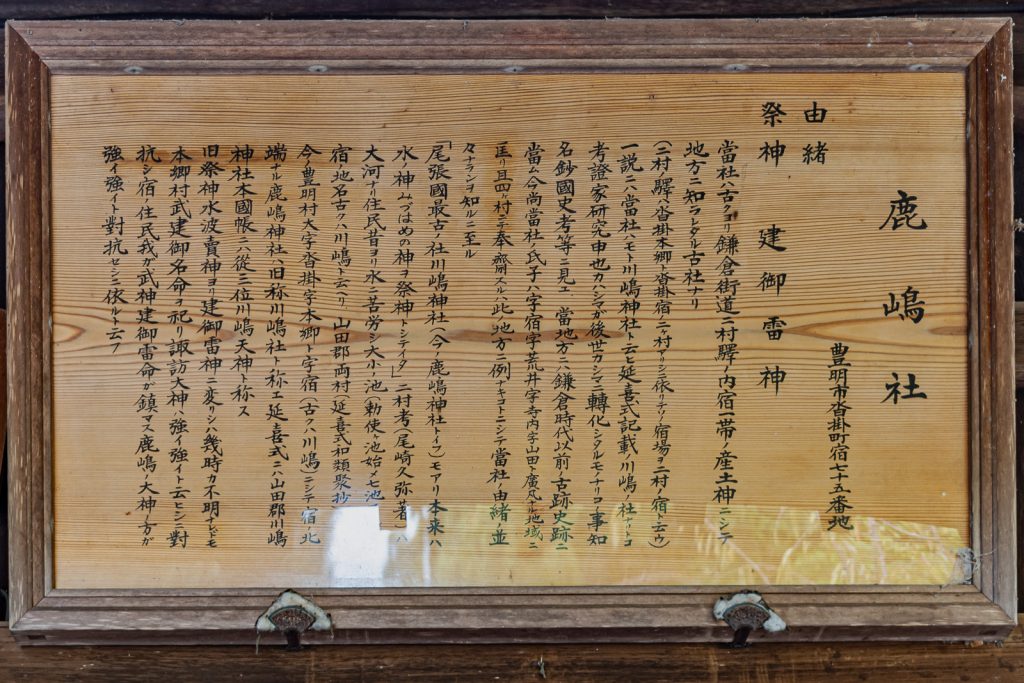 鹿嶋社
豊明市沓掛町宿七十五番地
由緒
祭神 建御雷神
當社ハ古クヨリ鎌倉街道二村驛ノ内宿一帯ノ産土神ニシテ
地方ニ知ラレタル古社ナリ
(二村ノ驛ハ沓掛本郷ト沓掛宿ニケ村アリシニ依リテノ宿場ヲ二村ノ宿ト云ウ)
一説ニハ當社ハモト川嶋神社ト云ヒ延喜式記載ノ川嶋ノ社ナリトコ
考證家研究中也カハシマガ後世カシマニ轉化シタルモノナリコノ事知
名鈔國史考等ニ見エ 當地方ニハ鎌倉時代以前ノ古跡史跡ニ
當ム今尚當社氏子ハ字宿字荒井字寺内字山田ト廣凡ナル地域ニ
匡リ且四ケ村ニテ奉齋スルハ此ノ地方ニ例ナキコトニシテ當社ノ由緒ノ並
々ナランヲ知ルニ至ル
「尾張國最古ノ社川嶋神社(今ノ鹿嶋神社トイフ)モアリ本来ハ
水ノ神みづはめの神ヲ祭神トシテイタ」二村考(尾崎久弥著)ハ
大河ナリ住民昔ヨリ水ニ苦労シ大小ノ池(勅使ケ池始メ七池
宿ノ地名古クハ川嶋ト云ヘリ 山田郡両村(延喜式和類聚抄
今ノ豊明村大字沓掛字本郷ト字宿(古クハ川嶋)ニシテ宿ノ北
端ナル鹿嶋神社ハ旧称川嶋社ト称エ延喜式ニハ山田郡川嶋
神社本國帳ニハ從三位川嶋天神ト称ス
旧祭神水波賣神ヨリ建御雷神ニ変リシハ幾時カ不明ナレドモ
本郷村武建御名命ヲ祀リ諏訪大神ハ強イ強イト云ヒシニ對
抗シ宿ノ住民我ガ武神建御雷命が鎮マス鹿嶋ノ大神ノ方ガ
強イ強イト對抗セシニ依ルト云フ